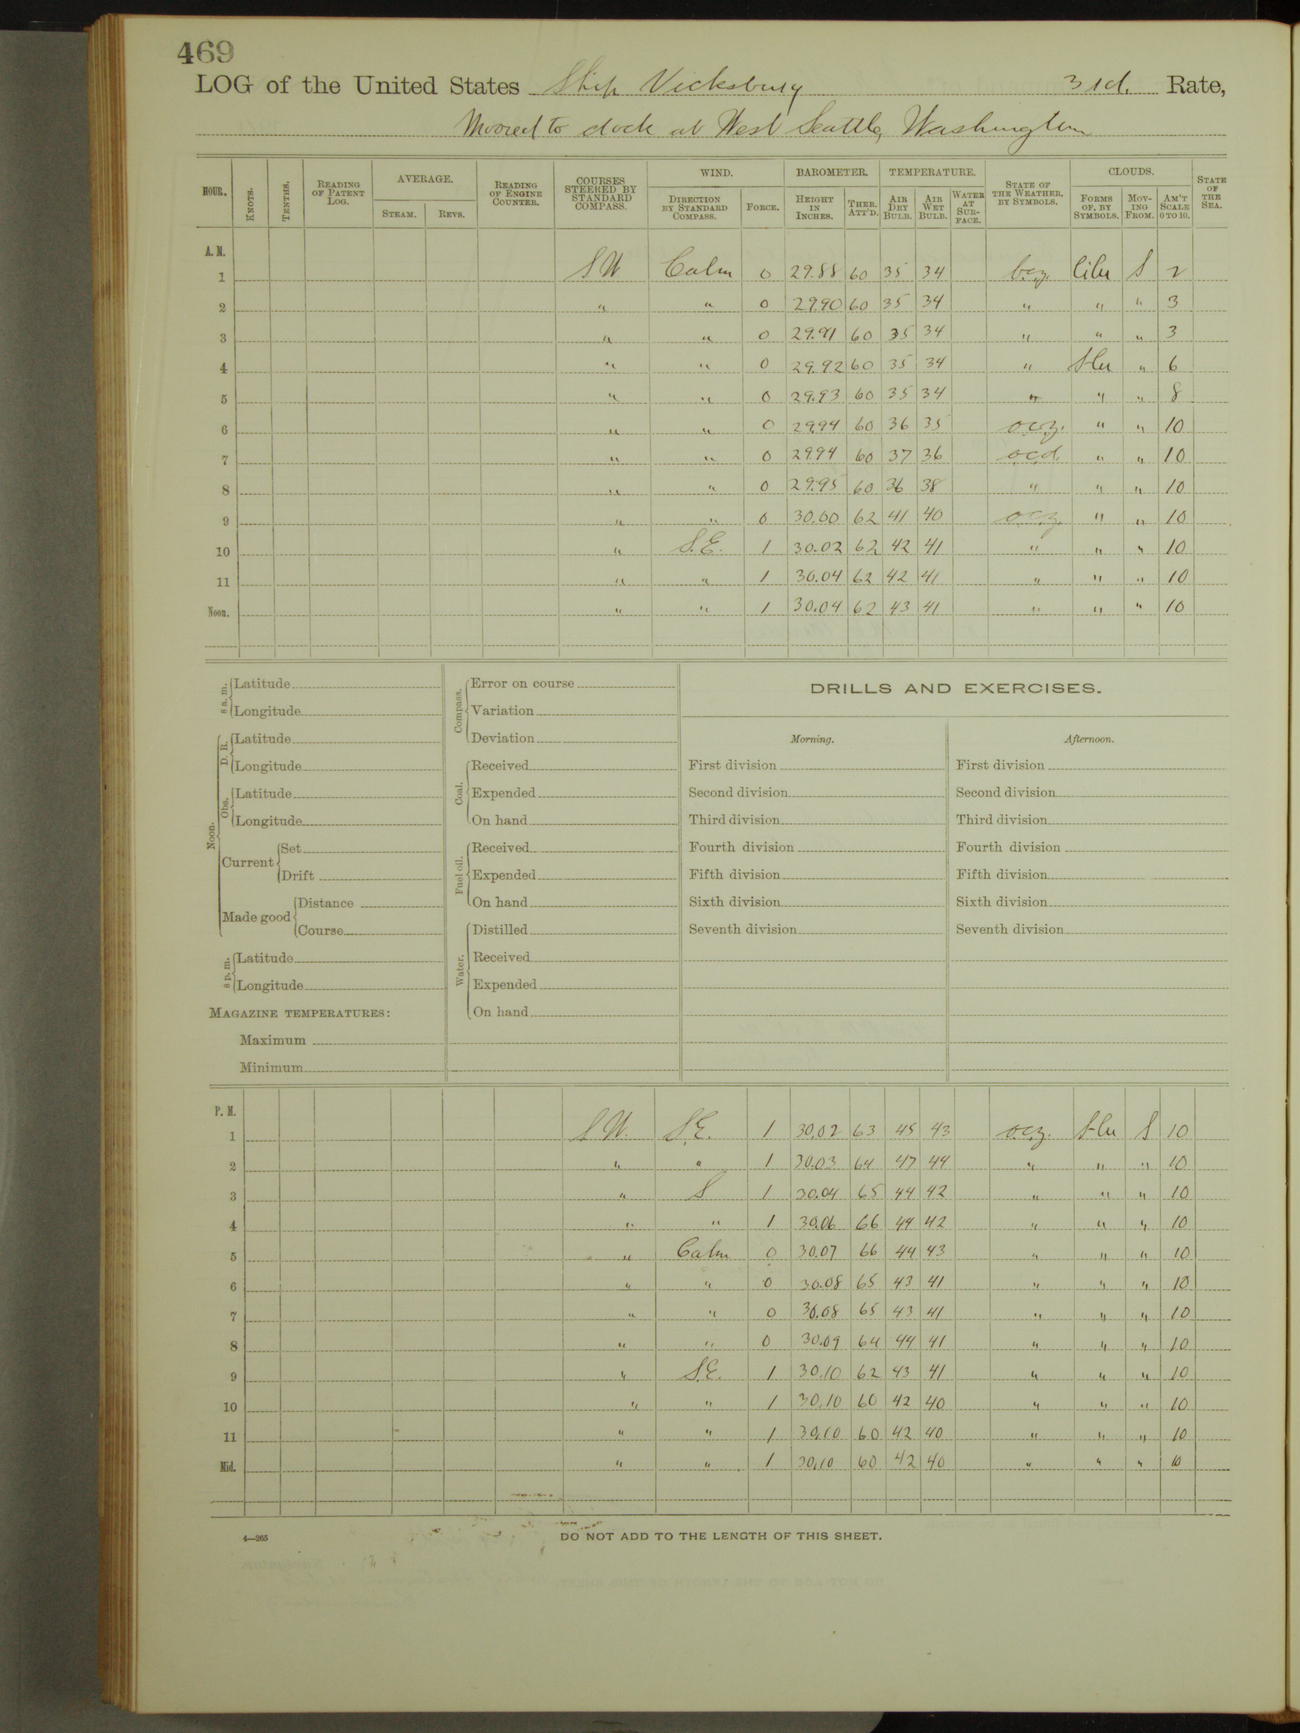 469
LOG of the United States Ship Vicksburg 3rd. Rate,
Moored to dock at West Seattle, Washington
HOUR. KNOTS. TENTHS. READING OF PATENT LOG. AVERAGE. STEAM. REVS. READING OF ENGINE COUNTER. COURSES STEERED BY STANDARD COMPASS. WIND. DIRECTION BY STANDARD COMPASS. FORCE. BAROMETER. HEIGHT IN INCHES. THER. ATT'D. TEMPERATURE. AIR DRY BULB. AIR WET BULB. WATER AT SURFACE. STATE OF THE WEATHER, BY SYMBOLS. CLOUDS. FORMS OF, BY SYMBOLS. MOVING FROM. AM'T SCALE 0 TO 10. STATE OF THE SEA.
A. M.
1 SW Calm 0 29.88 60 35 34 b.c.z. Cicu S 2
2 " " 0 29.90 60 35 34 " " " 3
3 " " 0 29.91 60 35 34 " " " 3
4 " " 0 29.92 60 35 34 " S-Cu " 6
5 " " 0 29.93 60 35 34 " " " 8
6 " " 0 29.94 60 36 35 o.c.z. " " 10
7 " " 0 29.94 60 37 36 o.c.d. " " 10
8 " " 0 29.95 60 36 38 " " " 10
9 " " 0 30.00 62 41 40 o.c.z. " " 10
10 " S.E. 1 30.02 62 42 41 " " " 10
11 " " 1 30.04 62 42 41 " " " 10
Noon. " " 1 30.04 62 43 41 " " " 10
8 a. m. Latitude
Longitude
Noon. D. R. Latitude
Longitude
Obs. Latitude
Longitude
Current Set
Drift
Made good Distance
Course
8 p. m. Latitude
Longitude
MAGAZINE TEMPERATURES:
Maximum
Minimum
Compass. Error on course
Variation
Deviation
Coal. Received
Expended
On hand
Fuel oil. Received
Expended
On hand
Water. Distilled
Received
Expended
On hand
DRILLS AND EXERCISES.
Morning. Afternoon.
First division First division
Second division Second division
Third division Third division
Fourth division Fourth division
Fifth division Fifth division
Sixth division Sixth division
Seventh division Seventh division
P. M.
1 SW. S.E. 1 30.02 63 45 43 o.c.z. S-Cu S 10
2 " " 1 30.03 64 47 44 " " " 10
3 " S 1 30.04 65 44 42 " " " 10
4 " " 1 30.06 66 44 42 " " " 10
5 " Calm 0 30.07 66 44 43 " " " 10
6 " " 0 30.08 65 43 41 " " " 10
7 " " 0 30.08 65 43 41 " " " 10
8 " " 0 30.09 64 44 41 " " " 10
9 " S.E. 1 30.10 62 43 41 " " " 10
10 " " 1 30.10 60 42 40 " " " 10
11 " " 1 30.10 60 42 40 " " " 10
Mid. " " 1 30.10 60 42 40 " " " 10
4—265 DO NOT ADD TO THE LENGTH OF THIS SHEET.